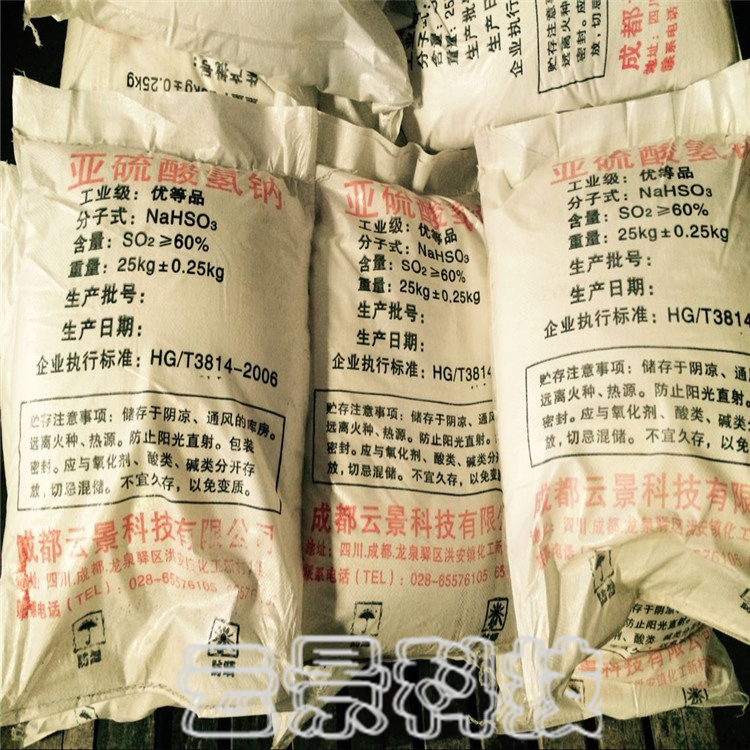 生产批号：
重量：25kg±0.25kg
分子式：NaHSO
含量：SO₂≥60%
重量：25kg±
生产批号：
生产日期：
企业执行标准：HG/T
贮存注意事项：
远离火种、热源。
密封。应与氧化剂
放，切忌混储。
成都云
地址：四川
联系电话
亚硫酸氢钠
工业级：优等品
分子式：NaHSO₃
含量：SO₂≥60%
重量：25kg±0.25kg
生产批号：
生产日期：
企业执行标准：HG/T3814-2006
贮存注意事项：储存于阴凉、通风的库房。
远离火种、热源。防止阳光直射。包装
密封。应与氧化剂、酸类、碱类分开存
放，切忌混储。不宜久存，以免变质。
成都云景科技有限公司
地址：四川.成都.龙泉驿区洪安镇化工新
联系电话（TEL）：028-65576105
防潮
防晒
亚硫酸氢
工业级：优等品
分子式：NaHSO₃
含量：SO₂≥60%
重量：25kg±0.25kg
生产批号：
生产日期：
企业执行标准：HG/T3814
贮存注意事项：储存于阴凉、通风
远离火种、热源。防止阳光直射。
密封。应与氧化剂、酸类、碱类分
放，切忌混储。不宜久存，以免
成都云景科技有限公
地址：四川.成都.龙泉驿区洪安镇化工新
联系电话（TEL）：028-65576105 65
防潮
亚硫酸氢钠
工业级：优等品
分子式：NaHSO₃
含量：SO₂≥60%
重量：25kg±0.25kg
生产批号：
生产日期：
企业执行标准：HG/T3814
贮存注意事项：储存于阴凉、通
远离火种、热源。防止阳光直射
密封。应与氧化剂、酸类、碱类
放，切忌混储。不宜久存，以
成都云景科技有限
地址：四川.成都.龙泉驿区洪安镇化
联系电话（TEL）：028-65576105
储存于阴凉、通风
防止阳光直射。包
酸类、碱类分
不宜久存，以免
科技有限公
龙泉驿区洪安镇化工新
云景科技